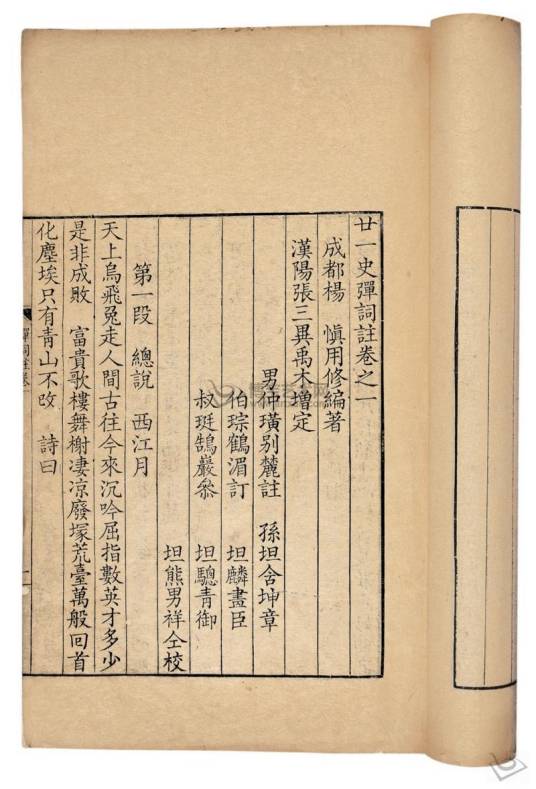 廿一史彈詞註卷之一
成都楊 慎用修編著
漢陽張三異禹木增定
男仲璜別麓註 孫坦舍坤章
伯琮鶴湄訂 坦麟畫臣
叔珽鵠巖叅 坦驄青御
坦熊男祥仝校
第一段 總說 西江月
天上烏飛兔走人間古往今來沉吟屈指數英才多少
是非成敗 富貴歌樓舞榭凄凉廢塚荒臺萬般回首
化塵埃只有青山不改 詩曰
彈詞註卷一